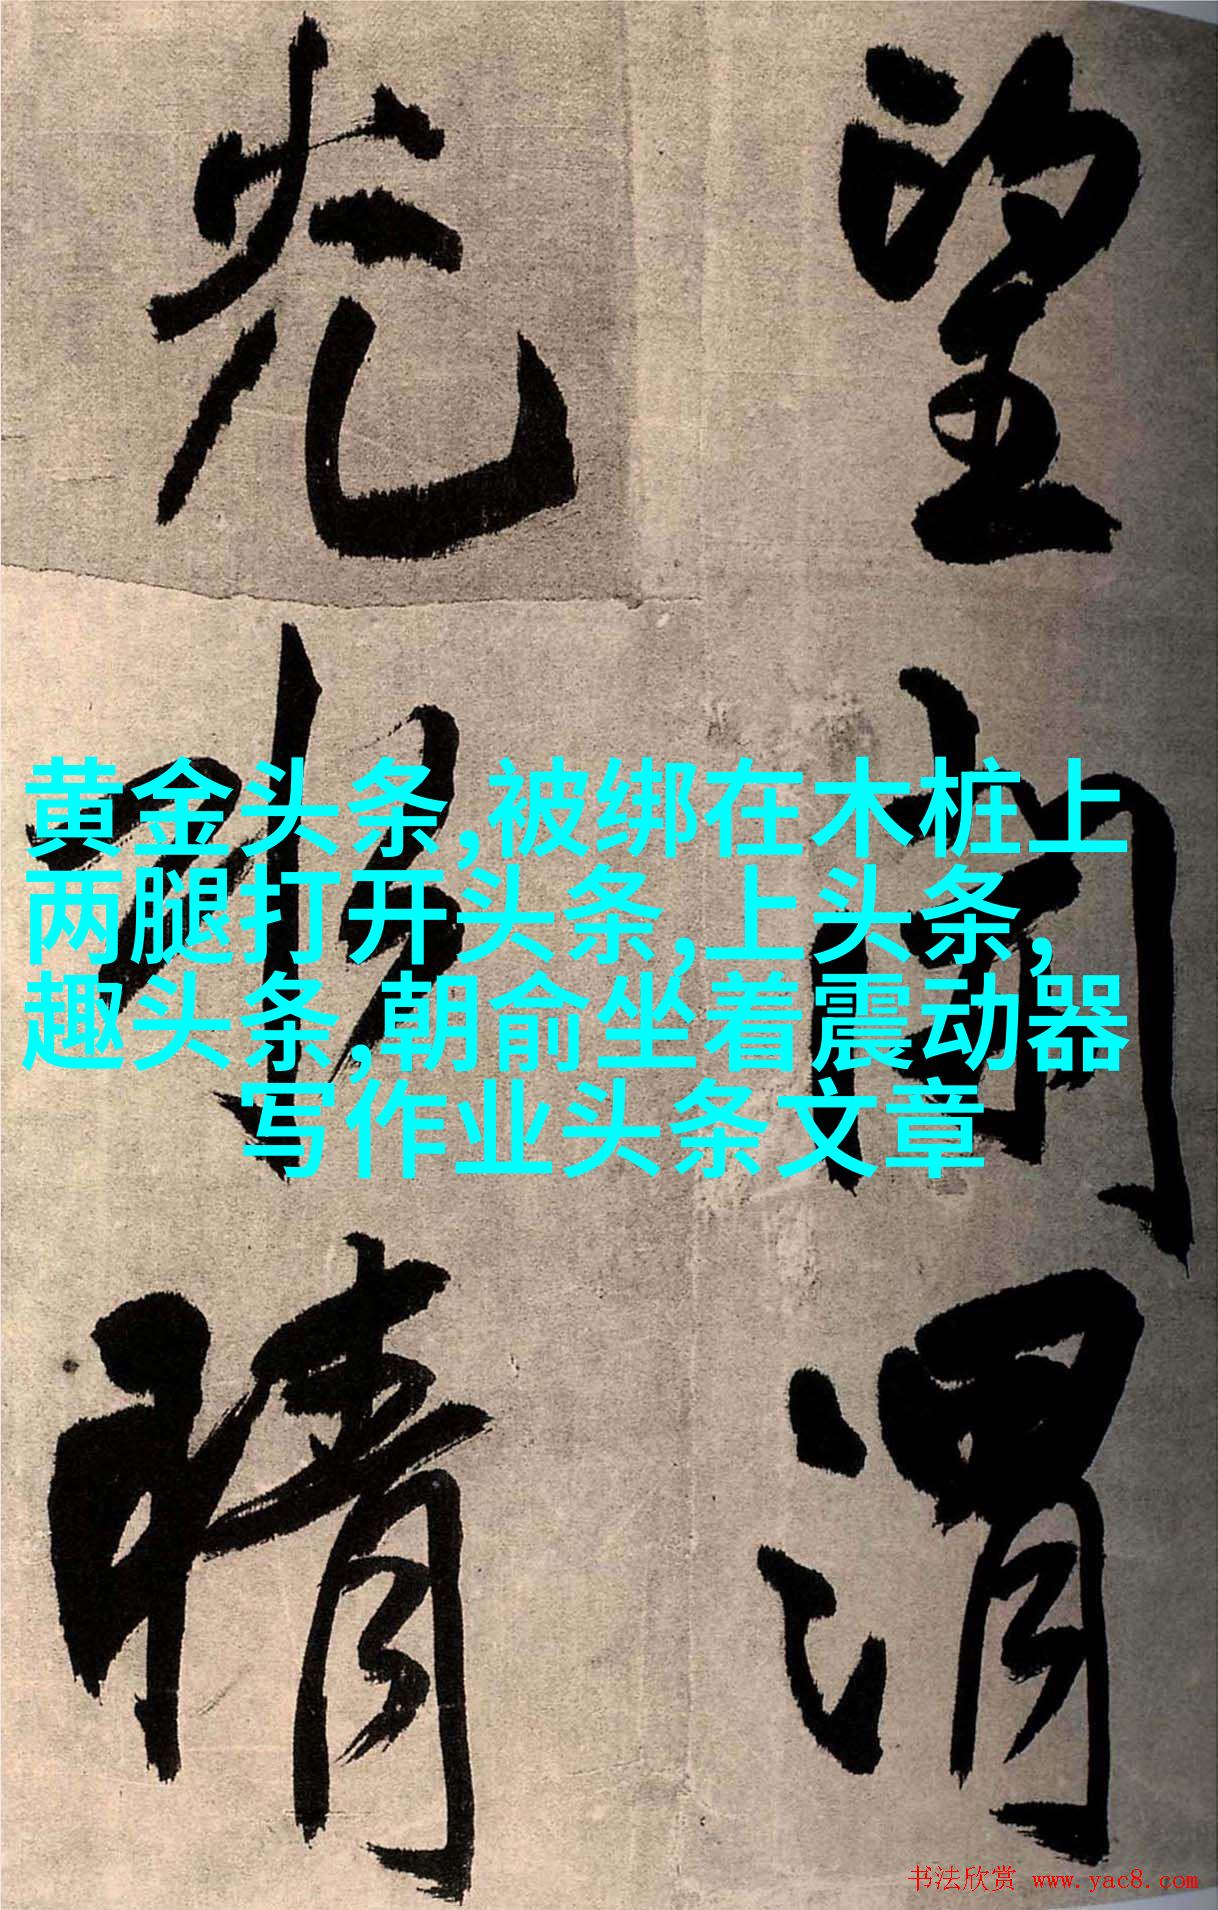 望 渭
光 晴
黄金头条,被绑在木桩上
两腿打开头条,上头条,
趣头条,朝俞坐着震动器
写作业头条文章
书法欣赏 www.yac8.com